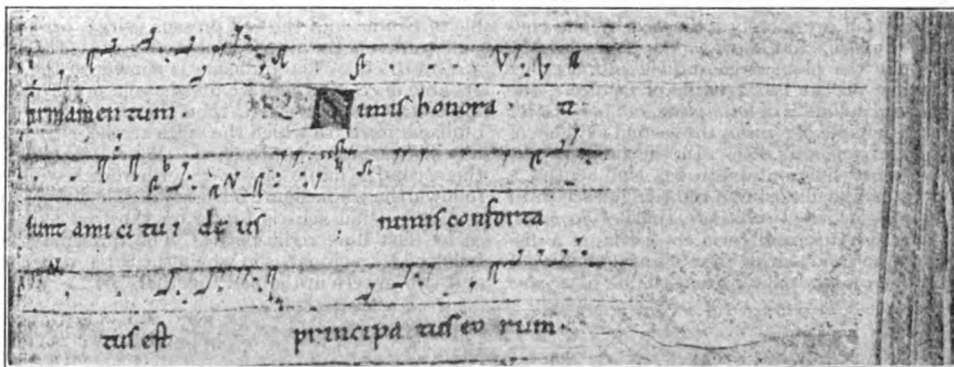 firmamentum · Nimis honora · ti
sunt ami ci tu i de us nimis conforta
tus est principa tus eo rum ·